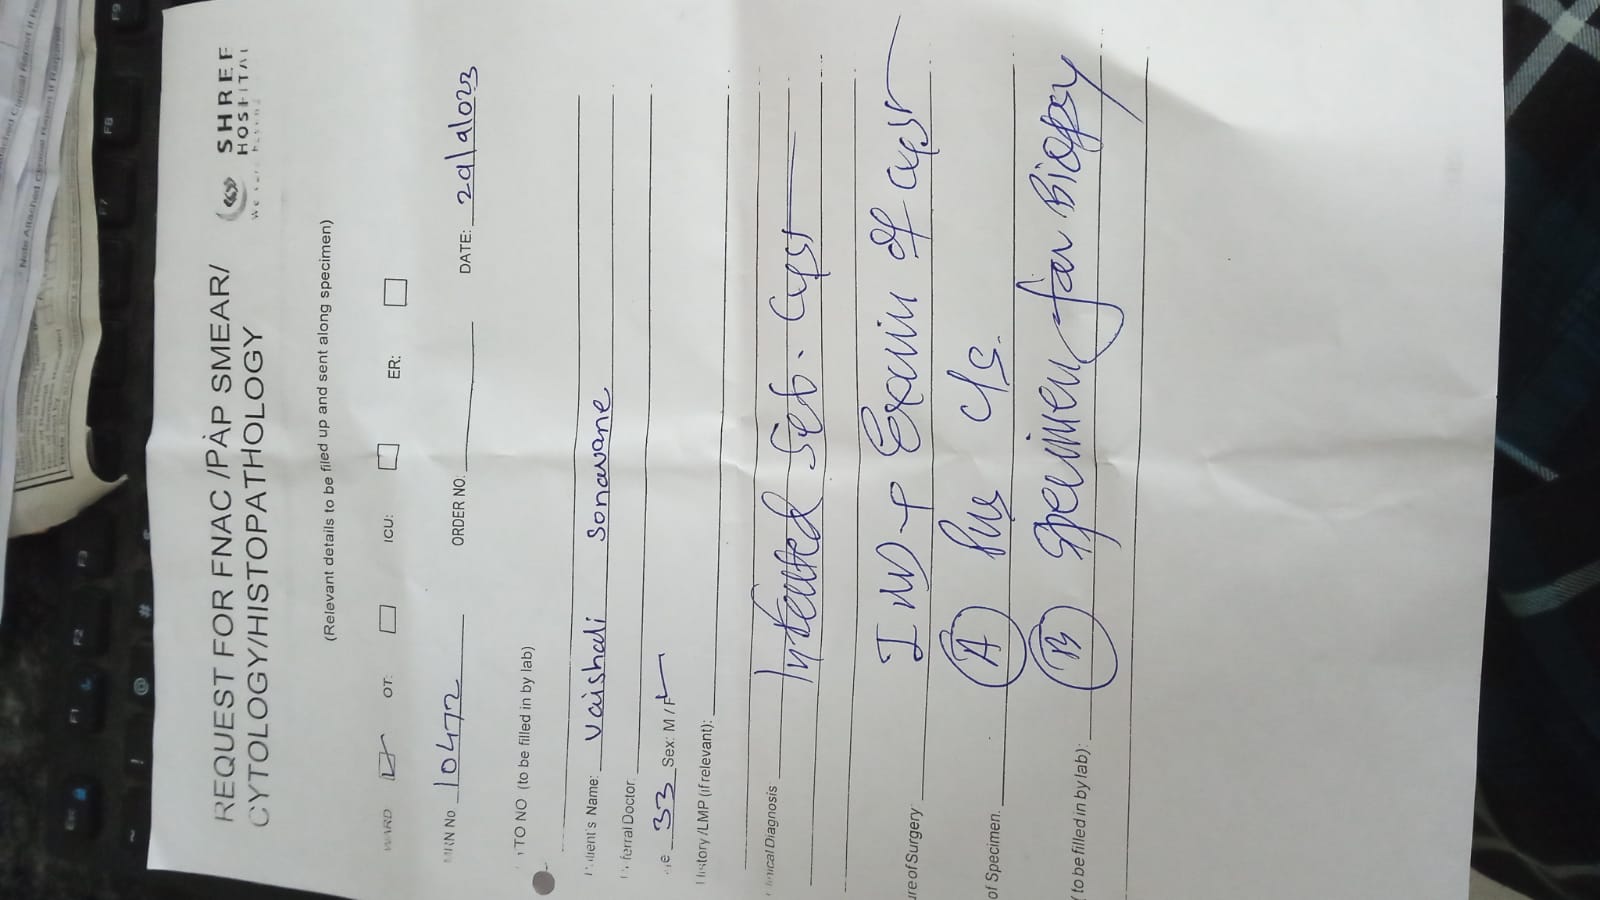 REQUEST FOR FNAC /PAP SMEAR/
CYTOLOGY/HISTOPATHOLOGY
SHREE
HOSPITAL
(Relevant details to be filed up and sent along specimen)
WARD OT: ICU: ER:
MRN No 10472 ORDER NO. DATE:
TO NO (to be filled in by lab)
Patient's Name: Vaishali Sonavane
ferral Doctor:
33 Sex: M / F
History /LMP (if relevant):
Clinical Diagnosis Infected Seb. Cyst
ure of Surgery: of cyst
of Specimen. (A) Pus C/s.
(to be filled in by lab): (B) Specimen for Biopsy
F9
F8
F7
F3
F2
F1
Esc